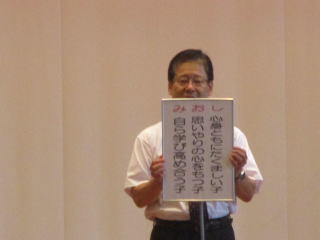 し 心身ともにたくましい子
お 思いやりの心をもつ子
み 自ら学び高め合う子